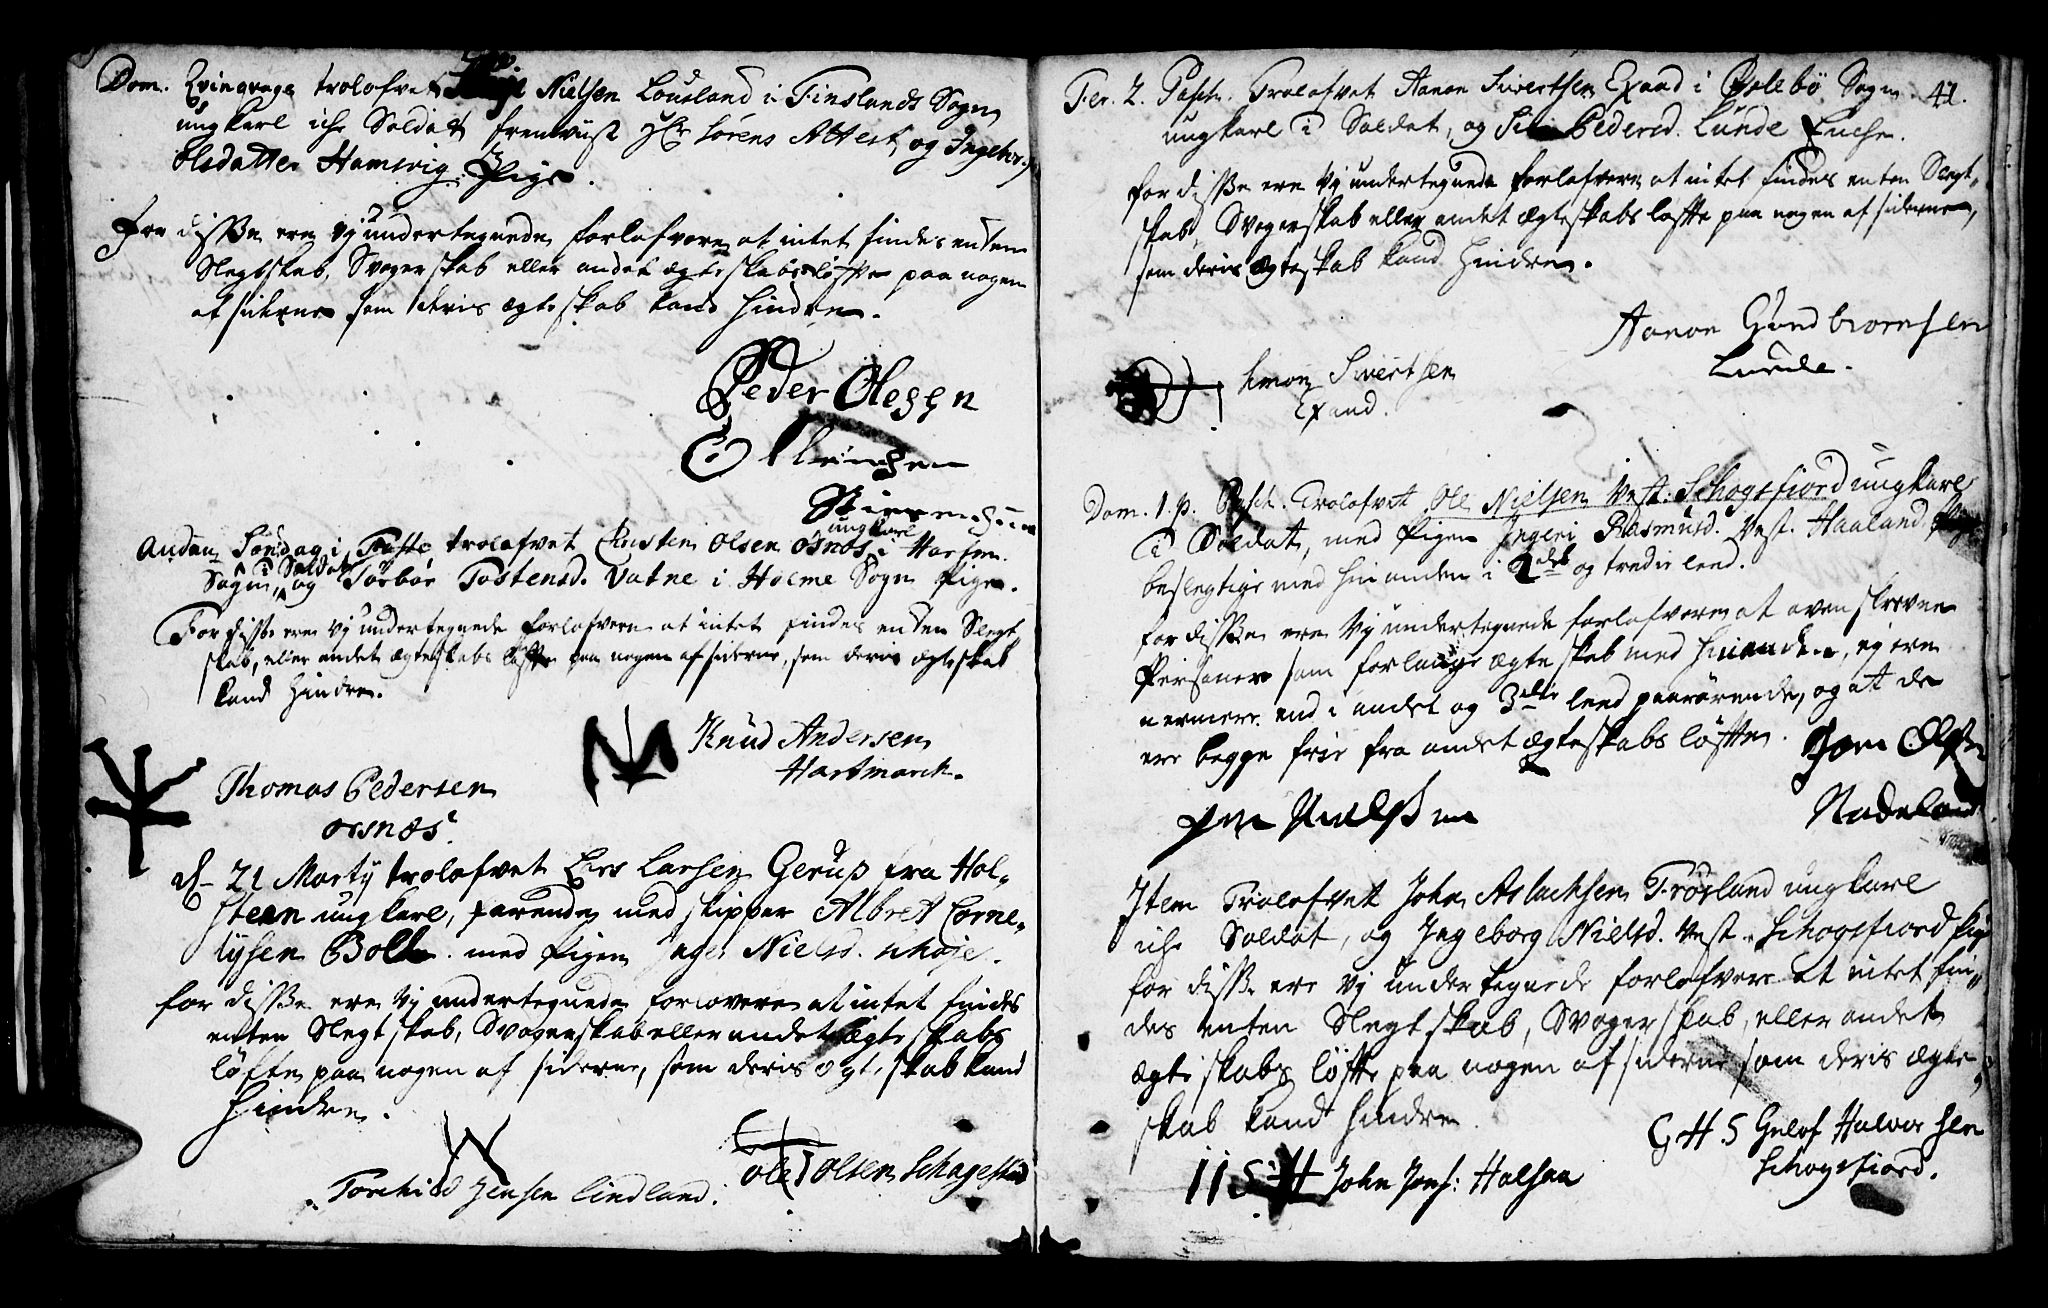 Dom. Qvinqvage trolofvet Nielsen Lousland i Finslands Sogn
ungkarl iche Soldat fremviist Hr Sørens Attest og Ingebor
Olsdatter Hamsvig Pige.
for disse ere vy undertegnede forlofvere at intet findes enten
Slegtskab, Svogerskab eller andet ægteskabsløffte paa nogen
af siderne som deris ægteskab kand hindre.
Peder Olessen
Anden Søndag i Faste trolofvet Christen Olsen Osnos ungkarl i Hartm.
Sogn, i Soldat og Torbor Tostensd. Vatne i Holme Sogn Pige.
For disse ere vy undertegnede forlofvere at intet findes enten Slegt
skab, eller andet ægteskabs løffte paa nogen af siderne, som deris ægteskab
kand hindre.
Knud Andersen
Hartmarck.
Thomas Pedersen
osnæs.
d. 21 Marty trolofvet Lars Larsen Gerup fra Hol-
steen ungkarl, farende med skipper Albret Corne-
lysen Bolt med Pigen Inge Nielsd.
for disse ere vy undertegnede forlovere at intet findes
enten Slegtskab, Svogerskab eller andet ægteskabs
løfte paa nogen af siderne, som deris ægteskab kand
hindre.
Torchild Jensen Lindland.
Ole Olsen Schagestad
Fer. 2. Pasch. Trolofvet Aanon Sivertsen Exaad i Øslebø Sogn 41.
ungkarl i Soldat, og Pedersd. Lunde Enche.
for disse ere vy undertegnede forlofvere at intet findes enten Slegt-
skab, Svogerskab eller andet ægteskabs løffte paa nogen af siderne,
som deris ægteskab kand hindre.
Aanon Gundbiornsen
Lunde.
Simon Sivertsen
Exaad.
Dom. 1. p. Pasch. Trolofvet Ole Nielsen Vest. Schogsfiord ungkarl
i Soldat, med Pigen Ingeri Rasmusd. Vest. Haaland
beslegtige med hinanden i 2det og tredie leed.
for disse ere vy undertegnede forlofvere at oven skrevne
Personer som forlange ægteskab med hinanden, ey ere
nermere end i andet og 3die leed paarørende, og at de
ere begge frie fra andet ægteskabs løffte.
Nodeland
Item Trolofvet John Aslachsen Frøsland ungkarl
iche Soldat, og Ingeborg Nielsd. Vest. Schogsfiord Pige
for disse ere vy undertegnede forlofvere at intet fin-
des enten Slegtskab, Svogerskab, eller andet
ægteskabs løffte paa nogen af siderne som deris ægte-
skab kand hindre.
G H S Gulof Halvorsen
Schogsfiord.
John Jens: Halsaa